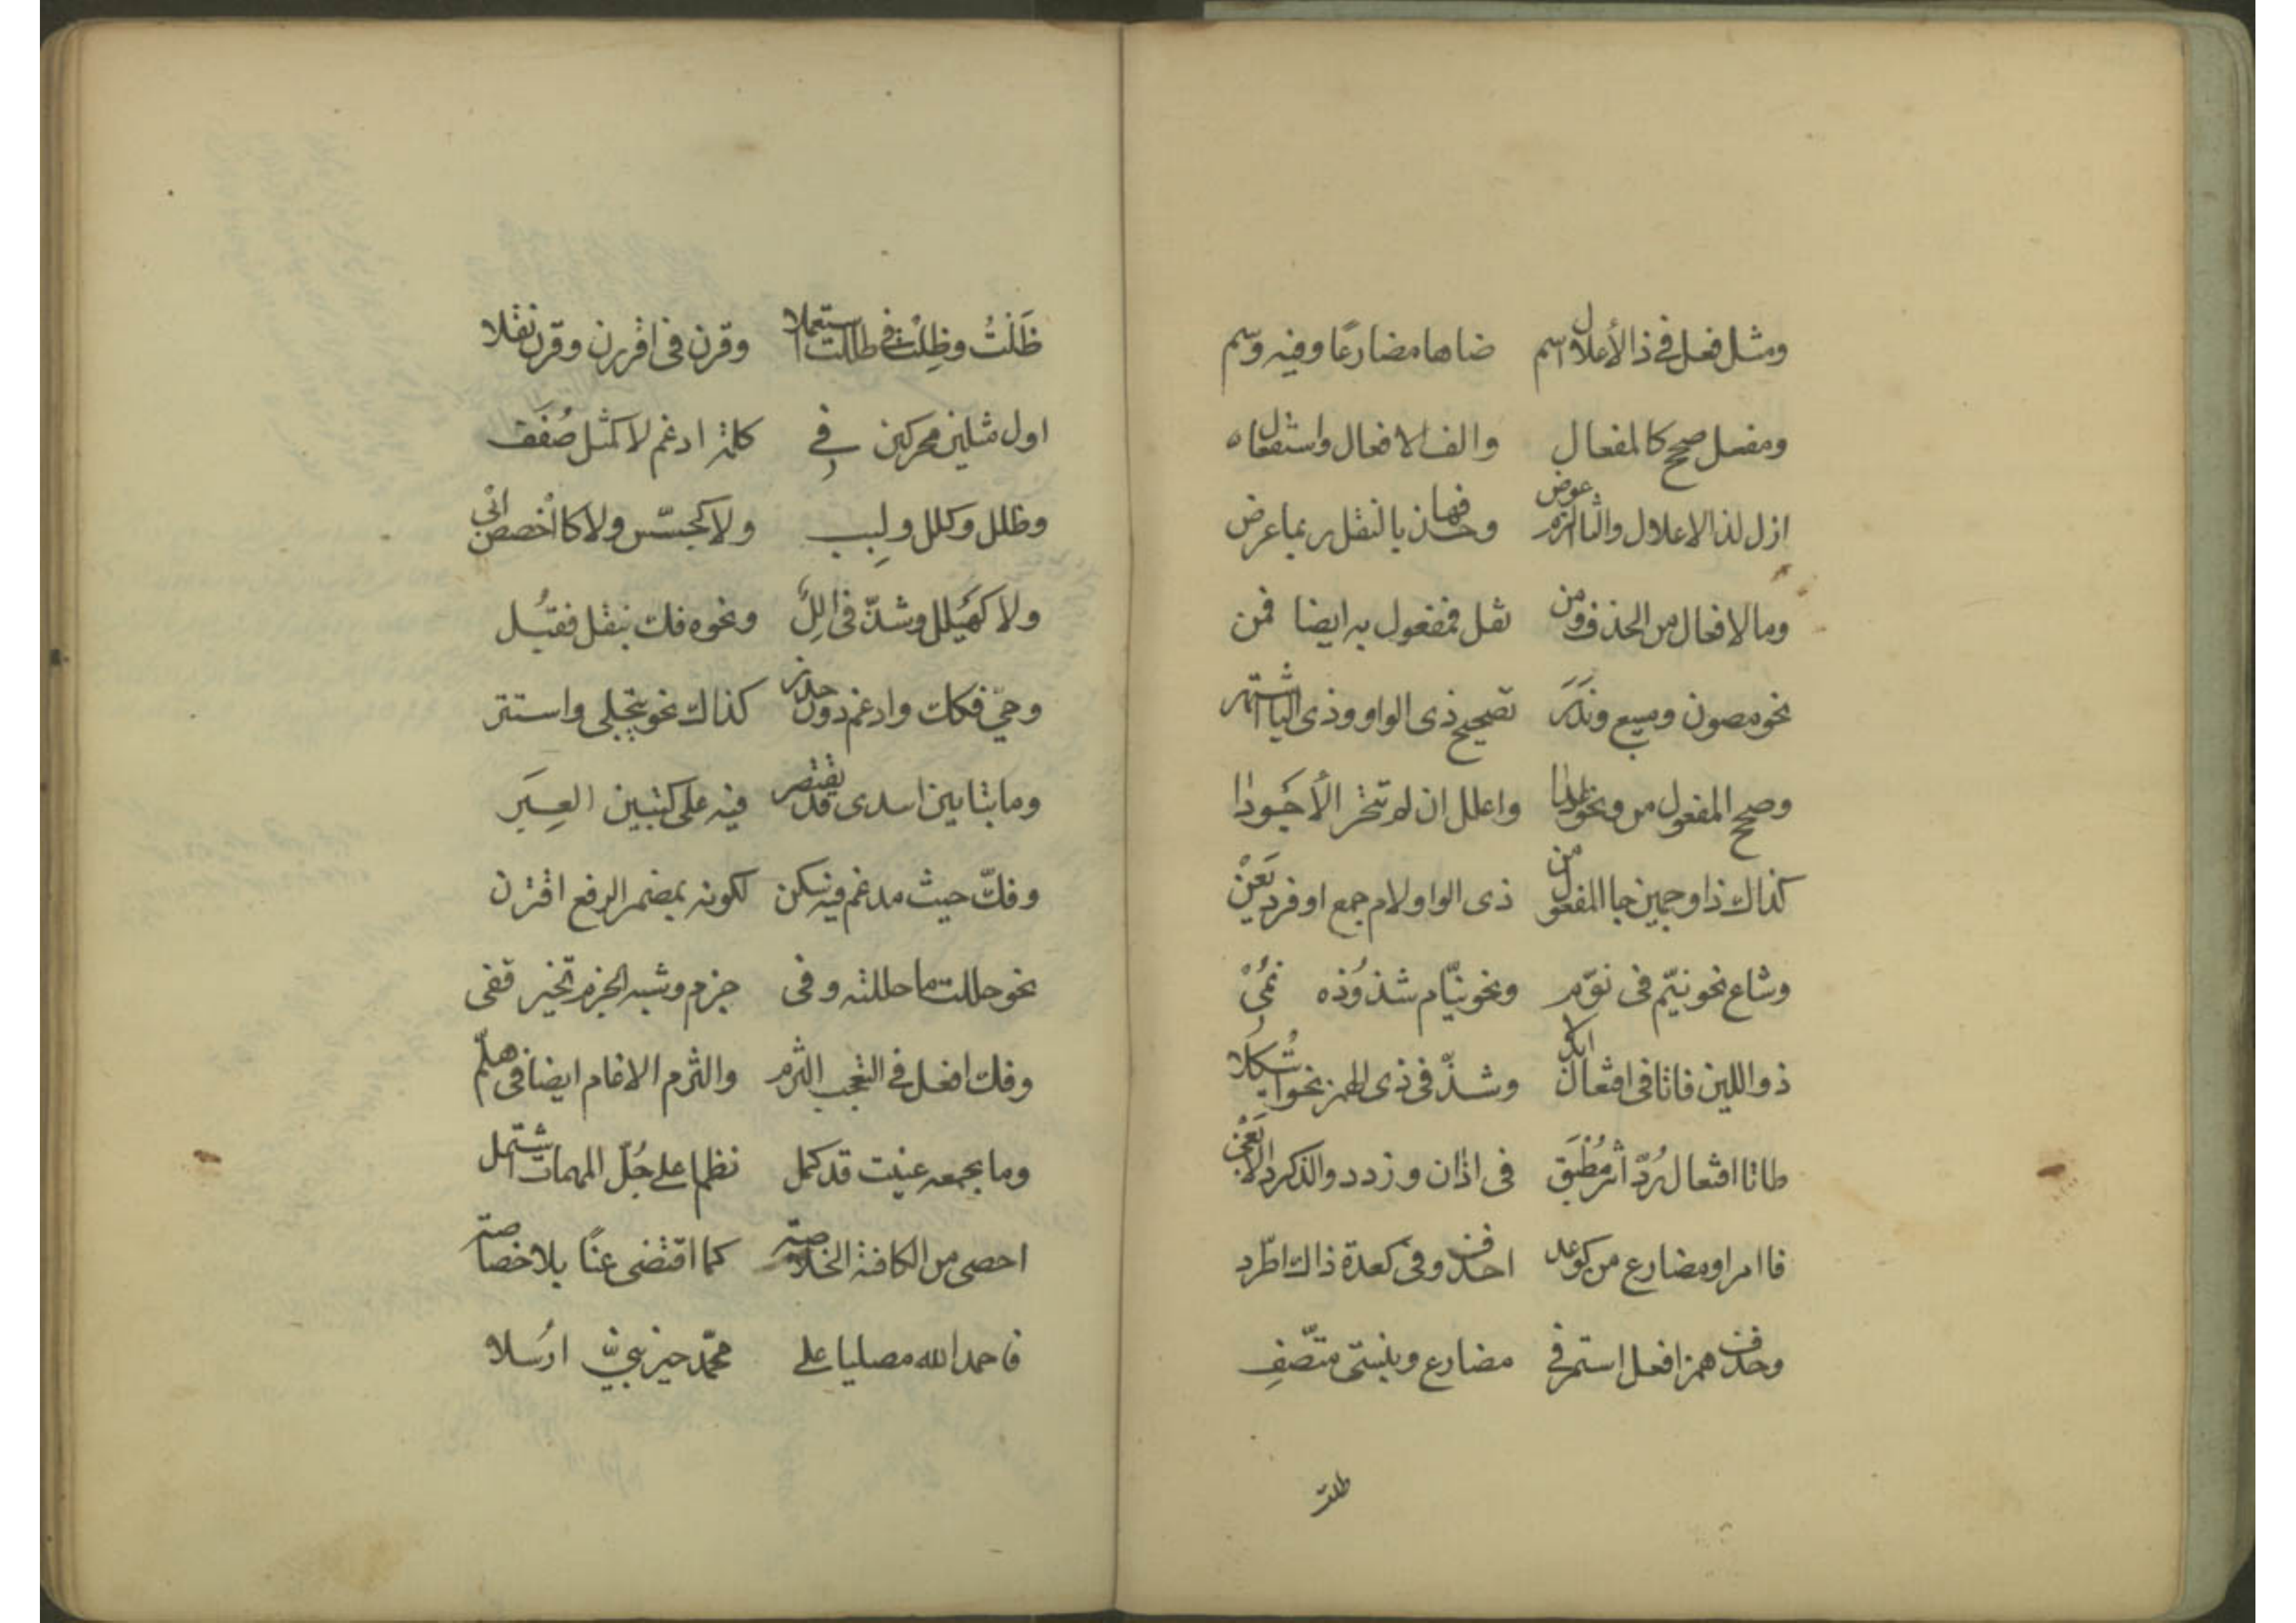 ومثل فعل في ذا الأعلال اسم ضاها مضارعًا وفيه وسم
ومفعل صحح كالمفعال والف الافعال واستفعال
ازل لذا الاعلال والتا الزم عوض وحذفها بالنقل ربما عرض
وما لافعال من الحذف ومن نقل فمفعول به ايضا قمن
نحو مصون ومبيع وندر تصحيح ذي الواو وفي ذي اليا اشتهر
وصحح المفعول من ونحو عدا واعلل ان لم تتحر الأجودا
كذاك ذا وجهين جا المفعول من ذي الواو لام جمع او فرد يعن
وشاع نحو نيّم في نوّم ونحو نيّام شذوذه نمي
ذو اللين فاتا في افتعال ابدلا وشذّ في ذي الهمز نحو ائتكلا
طاتا افتعال رُدّ اثر مُطبَق في ادّان وزدد والدكر دالا بقي
فا امر او مضارع من كوعد احذف وفي كعدة ذاك اطّرد
وحذف همز افعل استمر في مضارع وبنيتي متّصف
ظلت
ظَلْتُ وظِلْت في ظللت استعملا وقرن في اقررن وقرن نقلا
اول مثلين محركين في كلمة ادغم لا كمثل صُفَف
وظلل وكلل ولبب ولا كجسّس ولا كاخصص ابي
ولا كهيلل وشذّ في الل ونحوه فك بنقل فقبل
وحيي فكك وادغم دون حذر كذاك نحو تتجلى واستتر
وما بتاين ابتدى قد يقتصر فيه على كتبين العِبَر
وفكّ حيث مدغم فيه سكن لكونه بمضمر الرفع اقترن
نحو حللت ما حللته وفي جزم وشبه الجزم تخيير قفي
وفك افعل في التعجب التزم والتزم الادغام ايضا في هلمّ
وما بجمعه عنيت قد كمل نظما على جُلّ المهمات اشتمل
احصى من الكافية الخلاصه كما اقتضى غنًا بلا خصاصه
فاحمد الله مصليا على محمّد خير نبيّ ارسلا